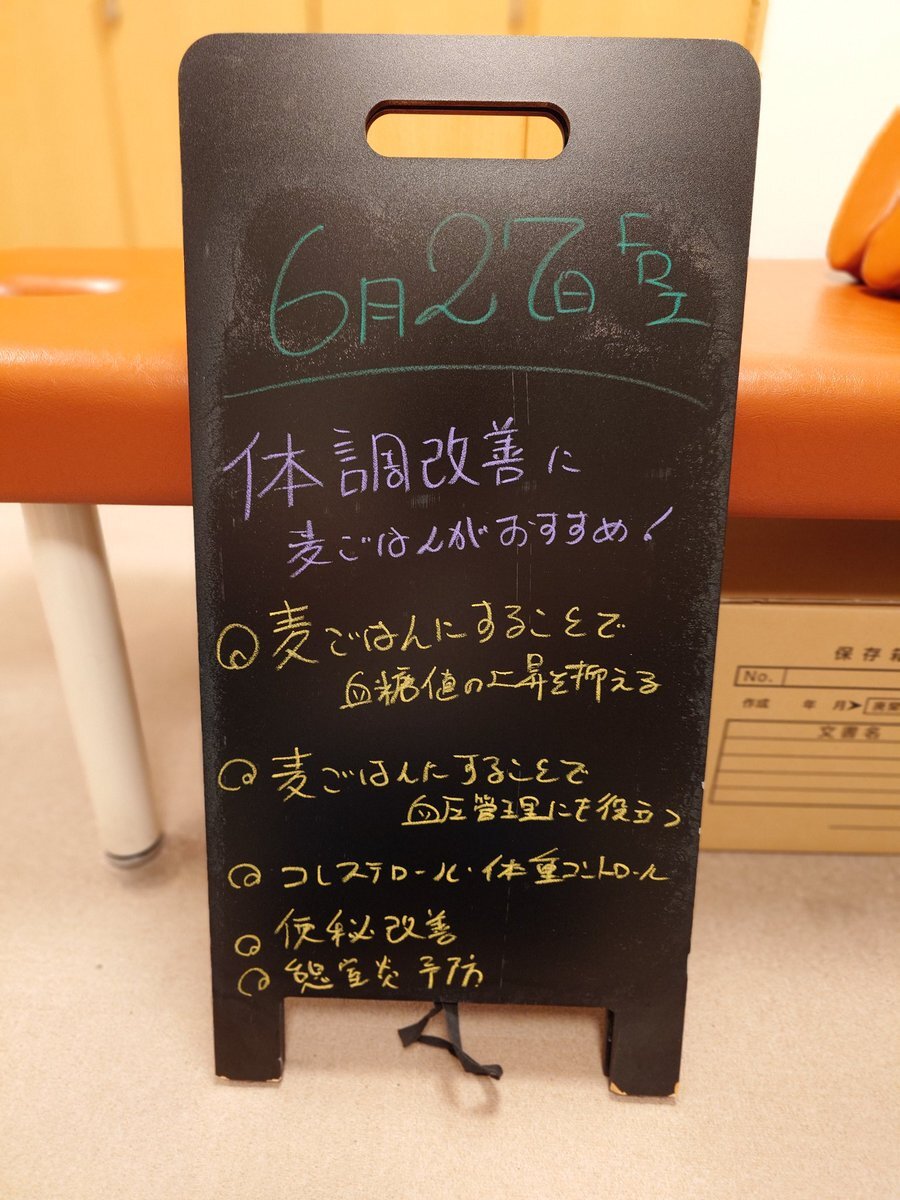 6月27日 FRI
体調改善に
麦ごはんがおすすめ!
麦ごはんにすることで
血糖値の上昇を抑える
麦ごはんにすることで
血圧管理にも役立つ
コレステロール・体重コントロール
便秘改善
憩室炎予防
保存箱
No.
作成 年 月
文書名